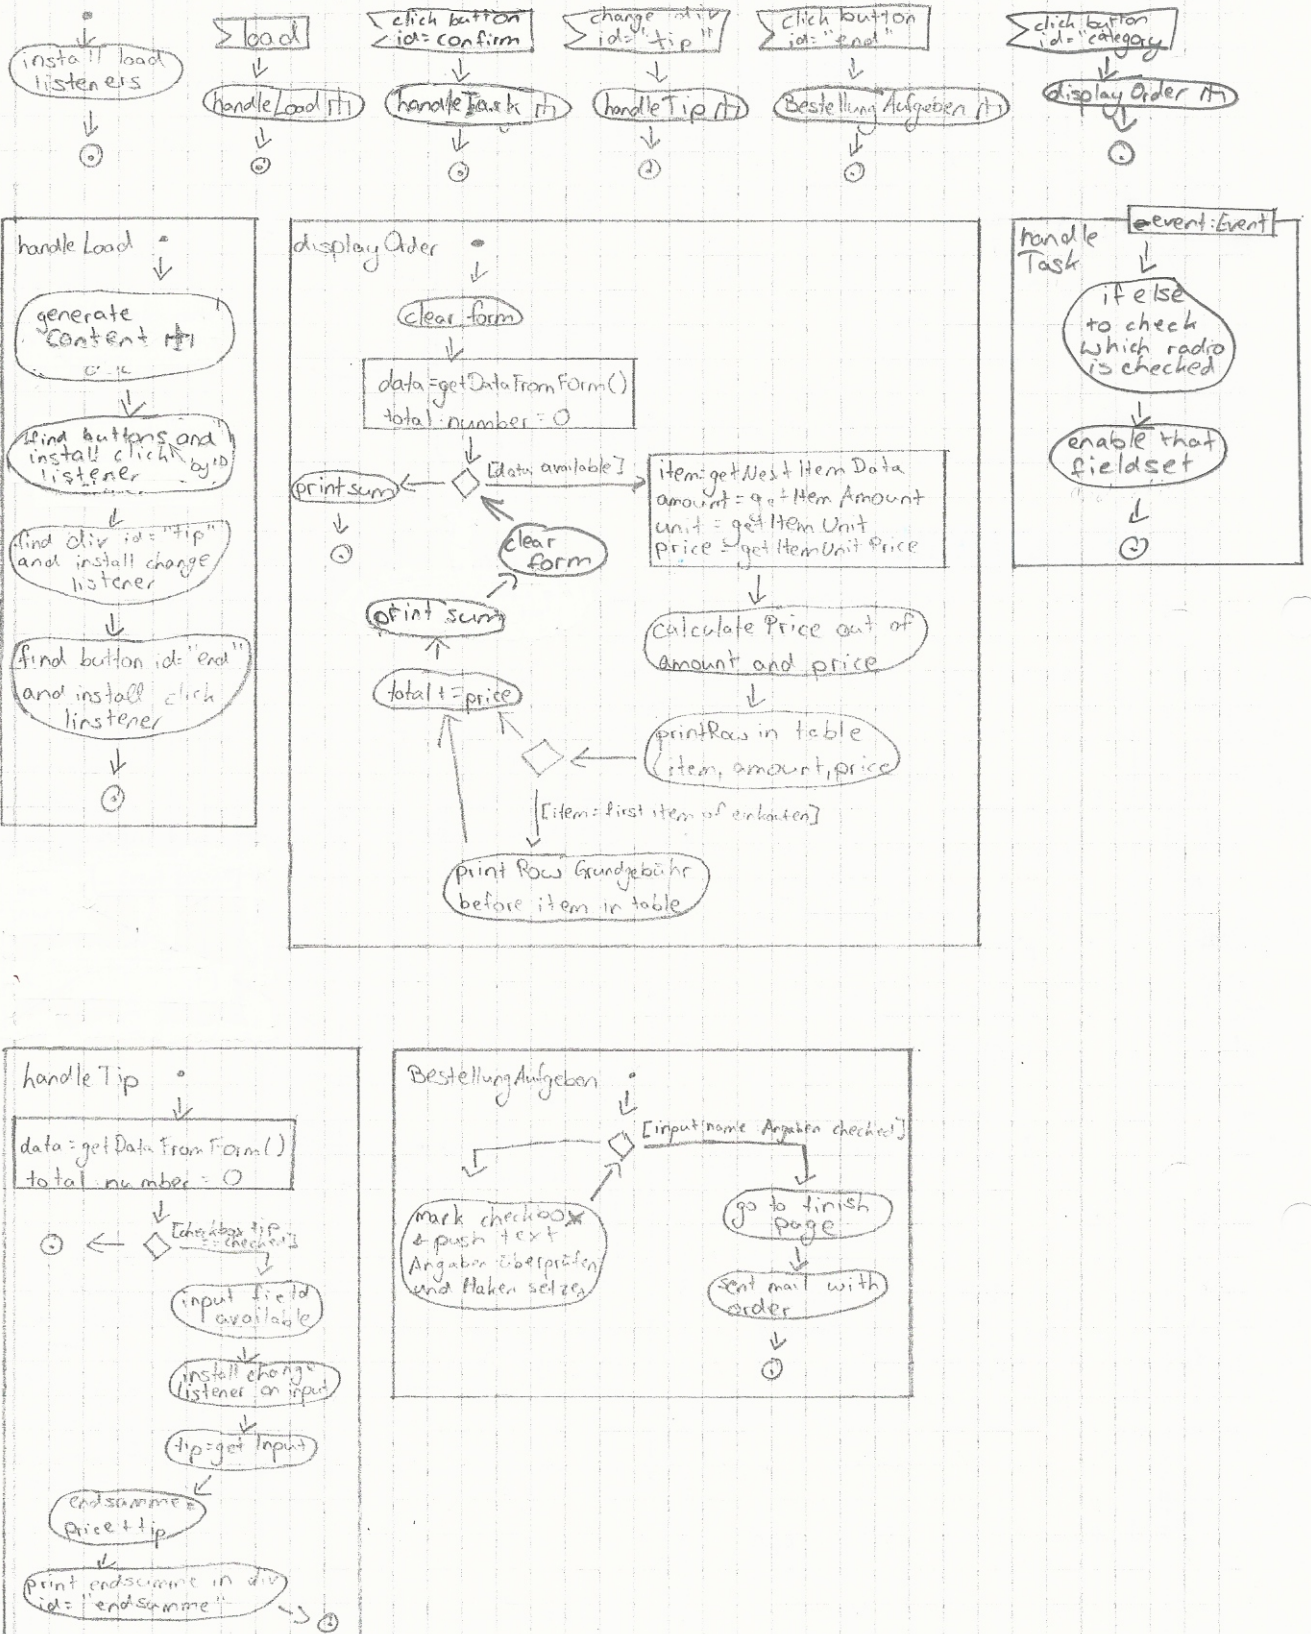 install load
listeners
load
handleLoad
click button
id=confirm
handleTask
change div
id="tip"
handleTip
click button
id="end"
BestellungAufgeben
click button
id="category
displayOrder
handleLoad
generate
content
find buttons and
install click
by ID
listener
find div id="tip"
and install change
listener
find button id="end"
and install click
linstener
displayOrder
clear form
data=getDataFromForm()
total number = 0
[data available]
print sum
item=getNextItemData
amount=getItemAmount
unit=getItemUnit
price=getItemUnitPrice
clear
form
print sum
calculate Price out of
amount and price
total+=price
printRow in table
(item, amount, price
[item=first item of einkaufen]
print Row Grundgebühr
before item in table
handle
Task
event:Event
if else
to check
which radio
is checked
enable that
fieldset
handleTip
data=getDataFromForm()
total number = 0
[checkbox tip
== checked]
input field
available
install change
listener on input
tip=get Input
endsumme=
price+tip
print endsumme in div
id="endsumme"
BestellungAufgeben
[input name Angaben checked]
mark checkbox
+ push text
Angaben überprüfen
und Haken setzen
go to finish
page
sent mail with
order